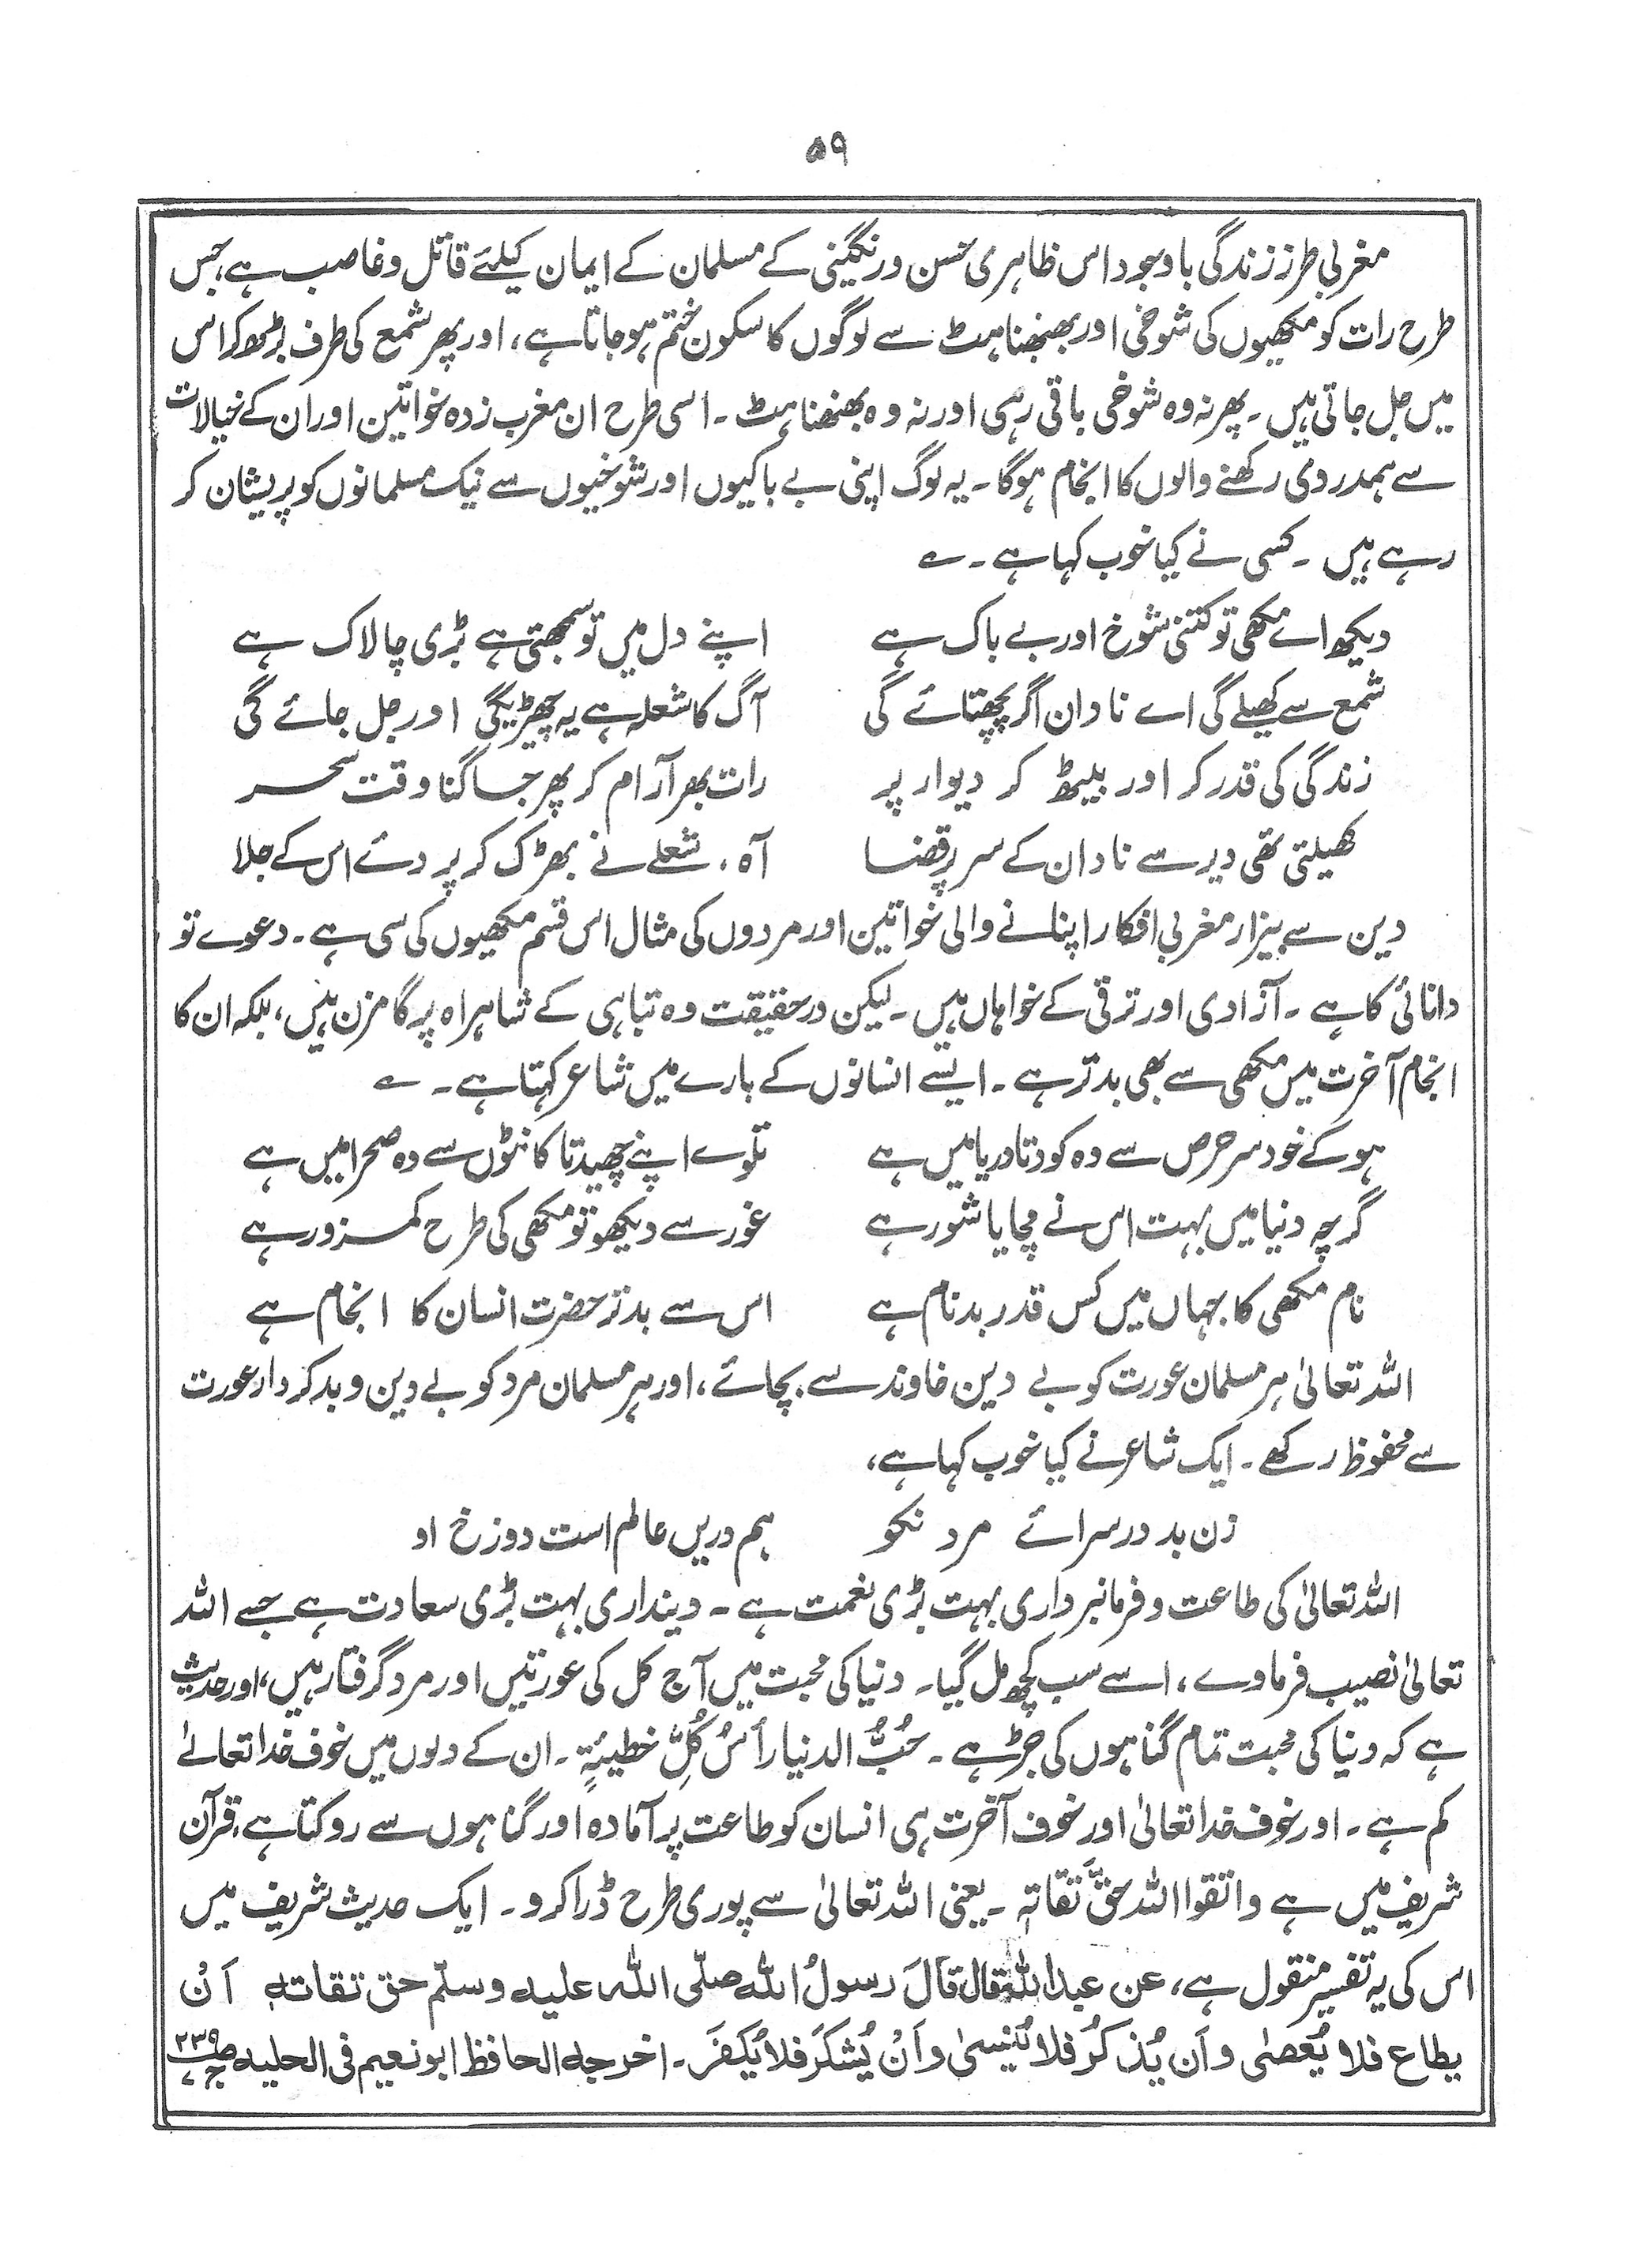 ۵۹
مغربی طرز زندگی باوجود اس ظاہری حسن ورنگینی کے مسلمان کے ایمان کیلئے قاتل وغاصب ہے، جس
طرح رات کو مکھیوں کی شوخی اور بھنبھناہٹ سے لوگوں کا سکون ختم ہوجاتا ہے، اور پھر شمع کی طرف بڑھ کر اس
میں جل جاتی ہیں۔ پھر نہ وہ شوخی باقی رہی اور نہ وہ بھنبھناہٹ۔ اسی طرح ان مغرب زدہ خواتین اور ان کے خیالات
سے ہمدردی رکھنے والوں کا انجام ہوگا۔ یہ لوگ اپنی بے باکیوں اور شوخیوں سے نیک مسلمانوں کو پریشان کر
رہے ہیں۔ کسی نے کیا خوب کہا ہے۔ ؎
دیکھ اے مکھی تو کتنی شوخ اور بے باک ہے اپنے دل میں تو سمجھتی ہے بڑی چالاک ہے
شمع سے کھیلے گی اے نادان اگر پچھتائے گی آگ کا شعلہ ہے یہ چھیڑیگی اور جل جائے گی
زندگی کی قدر کر اور بیٹھ کر دیوار پر رات بھر آرام کر پھر جاگنا وقت سحر
کھیلتی تھی دیر سے نادان کے سر پر قضا آہ، شعلے نے بھڑک کر پر دئے اس کے جلا
دین سے بیزار مغربی افکار اپنانے والی خواتین اور مردوں کی مثال اس قسم مکھیوں کی سی ہے۔ دعوے تو
دانائی کا ہے۔ آزادی اور ترقی کے خواہاں ہیں۔ لیکن درحقیقت وہ تباہی کے شاہراہ پر گامزن ہیں، بلکہ ان کا
انجام آخرت میں مکھی سے بھی بدتر ہے۔ ایسے انسانوں کے بارے میں شاعر کہتا ہے۔ ؎
ہو کے خود سر حرص سے وہ کودتا دریا میں ہے تلوے اپنے چھیدتا کانٹوں سے وہ صحرا میں ہے
گرچہ دنیا میں بہت اس نے مچایا شور ہے غور سے دیکھو تو مکھی کی طرح کمزور ہے
نام مکھی کا جہاں میں کس قدر بدنام ہے اس سے بدتر حضرت انسان کا انجام ہے
اللہ تعالیٰ ہر مسلمان عورت کو بے دین خاوند سے بچائے، اور ہر مسلمان مرد کو بے دین و بدکردار عورت
سے محفوظ رکھے۔ ایک شاعر نے کیا خوب کہا ہے،
زن بد در سرائے مرد نکو ہم دریں عالم است دوزخ او
اللہ تعالیٰ کی طاعت و فرمانبرداری بہت بڑی نعمت ہے۔ دینداری بہت بڑی سعادت ہے جسے اللہ
تعالیٰ نصیب فرماوے، اسے سب کچھ مل گیا۔ دنیا کی محبت میں آج کل کی عورتیں اور مرد گرفتار ہیں، اور حدیث
ہے کہ دنیا کی محبت تمام گناہوں کی جڑ ہے۔ حُبُّ الدنیا رأسُ کُلِّ خطیئةٍ۔ ان کے دلوں میں خوف خدا تعالےٰ
کم ہے۔ اور خوف خدا تعالیٰ اور خوف آخرت ہی انسان کو طاعت پر آمادہ اور گناہوں سے روکتا ہے، قرآن
شریف میں ہے واتقوا اللہ حقَّ تقاتہٖ۔ یعنی اللہ تعالیٰ سے پوری طرح ڈرا کرو۔ ایک حدیث شریف میں
اس کی یہ تفسیر منقول ہے، عن عبداللہ قال قَالَ رسولُ اللہ صلّی اللہ علیہ وسلّم حق تقاتہ اَنْ
یطاع فلا یُعصٰی و اَن یُذکرُ فلا یُنْسیٰ و اَنْ یُشکَرَ فلا یُکفَرَ۔ اخرجہ الحافظ ابونعیم فی الحلیہ ص۲۳۹ ج۷